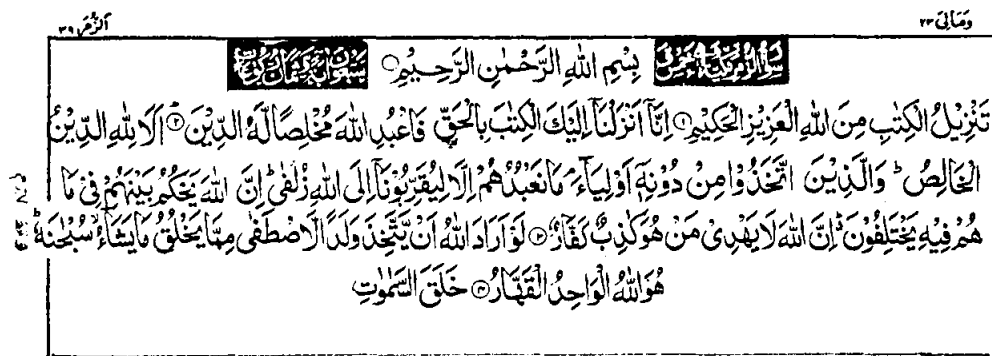 وَمَالِیَ ٢٣ اَلزُّمَر ٣٩
سُوْرَةُ الزُّمَرِ مَكِّيَّةٌ بِسْمِ اللهِ الرَّحْمٰنِ الرَّحِيْمِ
تَنْزِيْلُ الْكِتٰبِ مِنَ اللهِ الْعَزِيْزِ الْحَكِيْمِ ۝١ اِنَّاۤ اَنْزَلْنَاۤ اِلَيْكَ الْكِتٰبَ بِالْحَقِّ فَاعْبُدِ اللهَ مُخْلِصًا لَّهُ الدِّيْنَ ۝٢ اَلَا لِلّٰهِ الدِّيْنُ
الْخَالِصُ ؕ وَالَّذِيْنَ اتَّخَذُوْا مِنْ دُوْنِهٖۤ اَوْلِيَآءَ ۘ مَا نَعْبُدُهُمْ اِلَّا لِيُقَرِّبُوْنَاۤ اِلَى اللهِ زُلْفٰى ؕ اِنَّ اللهَ يَحْكُمُ بَيْنَهُمْ فِىْ مَا
هُمْ فِيْهِ يَخْتَلِفُوْنَ ؕ اِنَّ اللهَ لَا يَهْدِىْ مَنْ هُوَ كٰذِبٌ كَفَّارٌ ۝٣ لَوْ اَرَادَ اللهُ اَنْ يَّتَّخِذَ وَلَدًا لَّاصْطَفٰى مِمَّا يَخْلُقُ مَا يَشَآءُ ۙ سُبْحٰنَهٗ ؕ
هُوَ اللهُ الْوَاحِدُ الْقَهَّارُ ۝٤ خَلَقَ السَّمٰوٰتِ